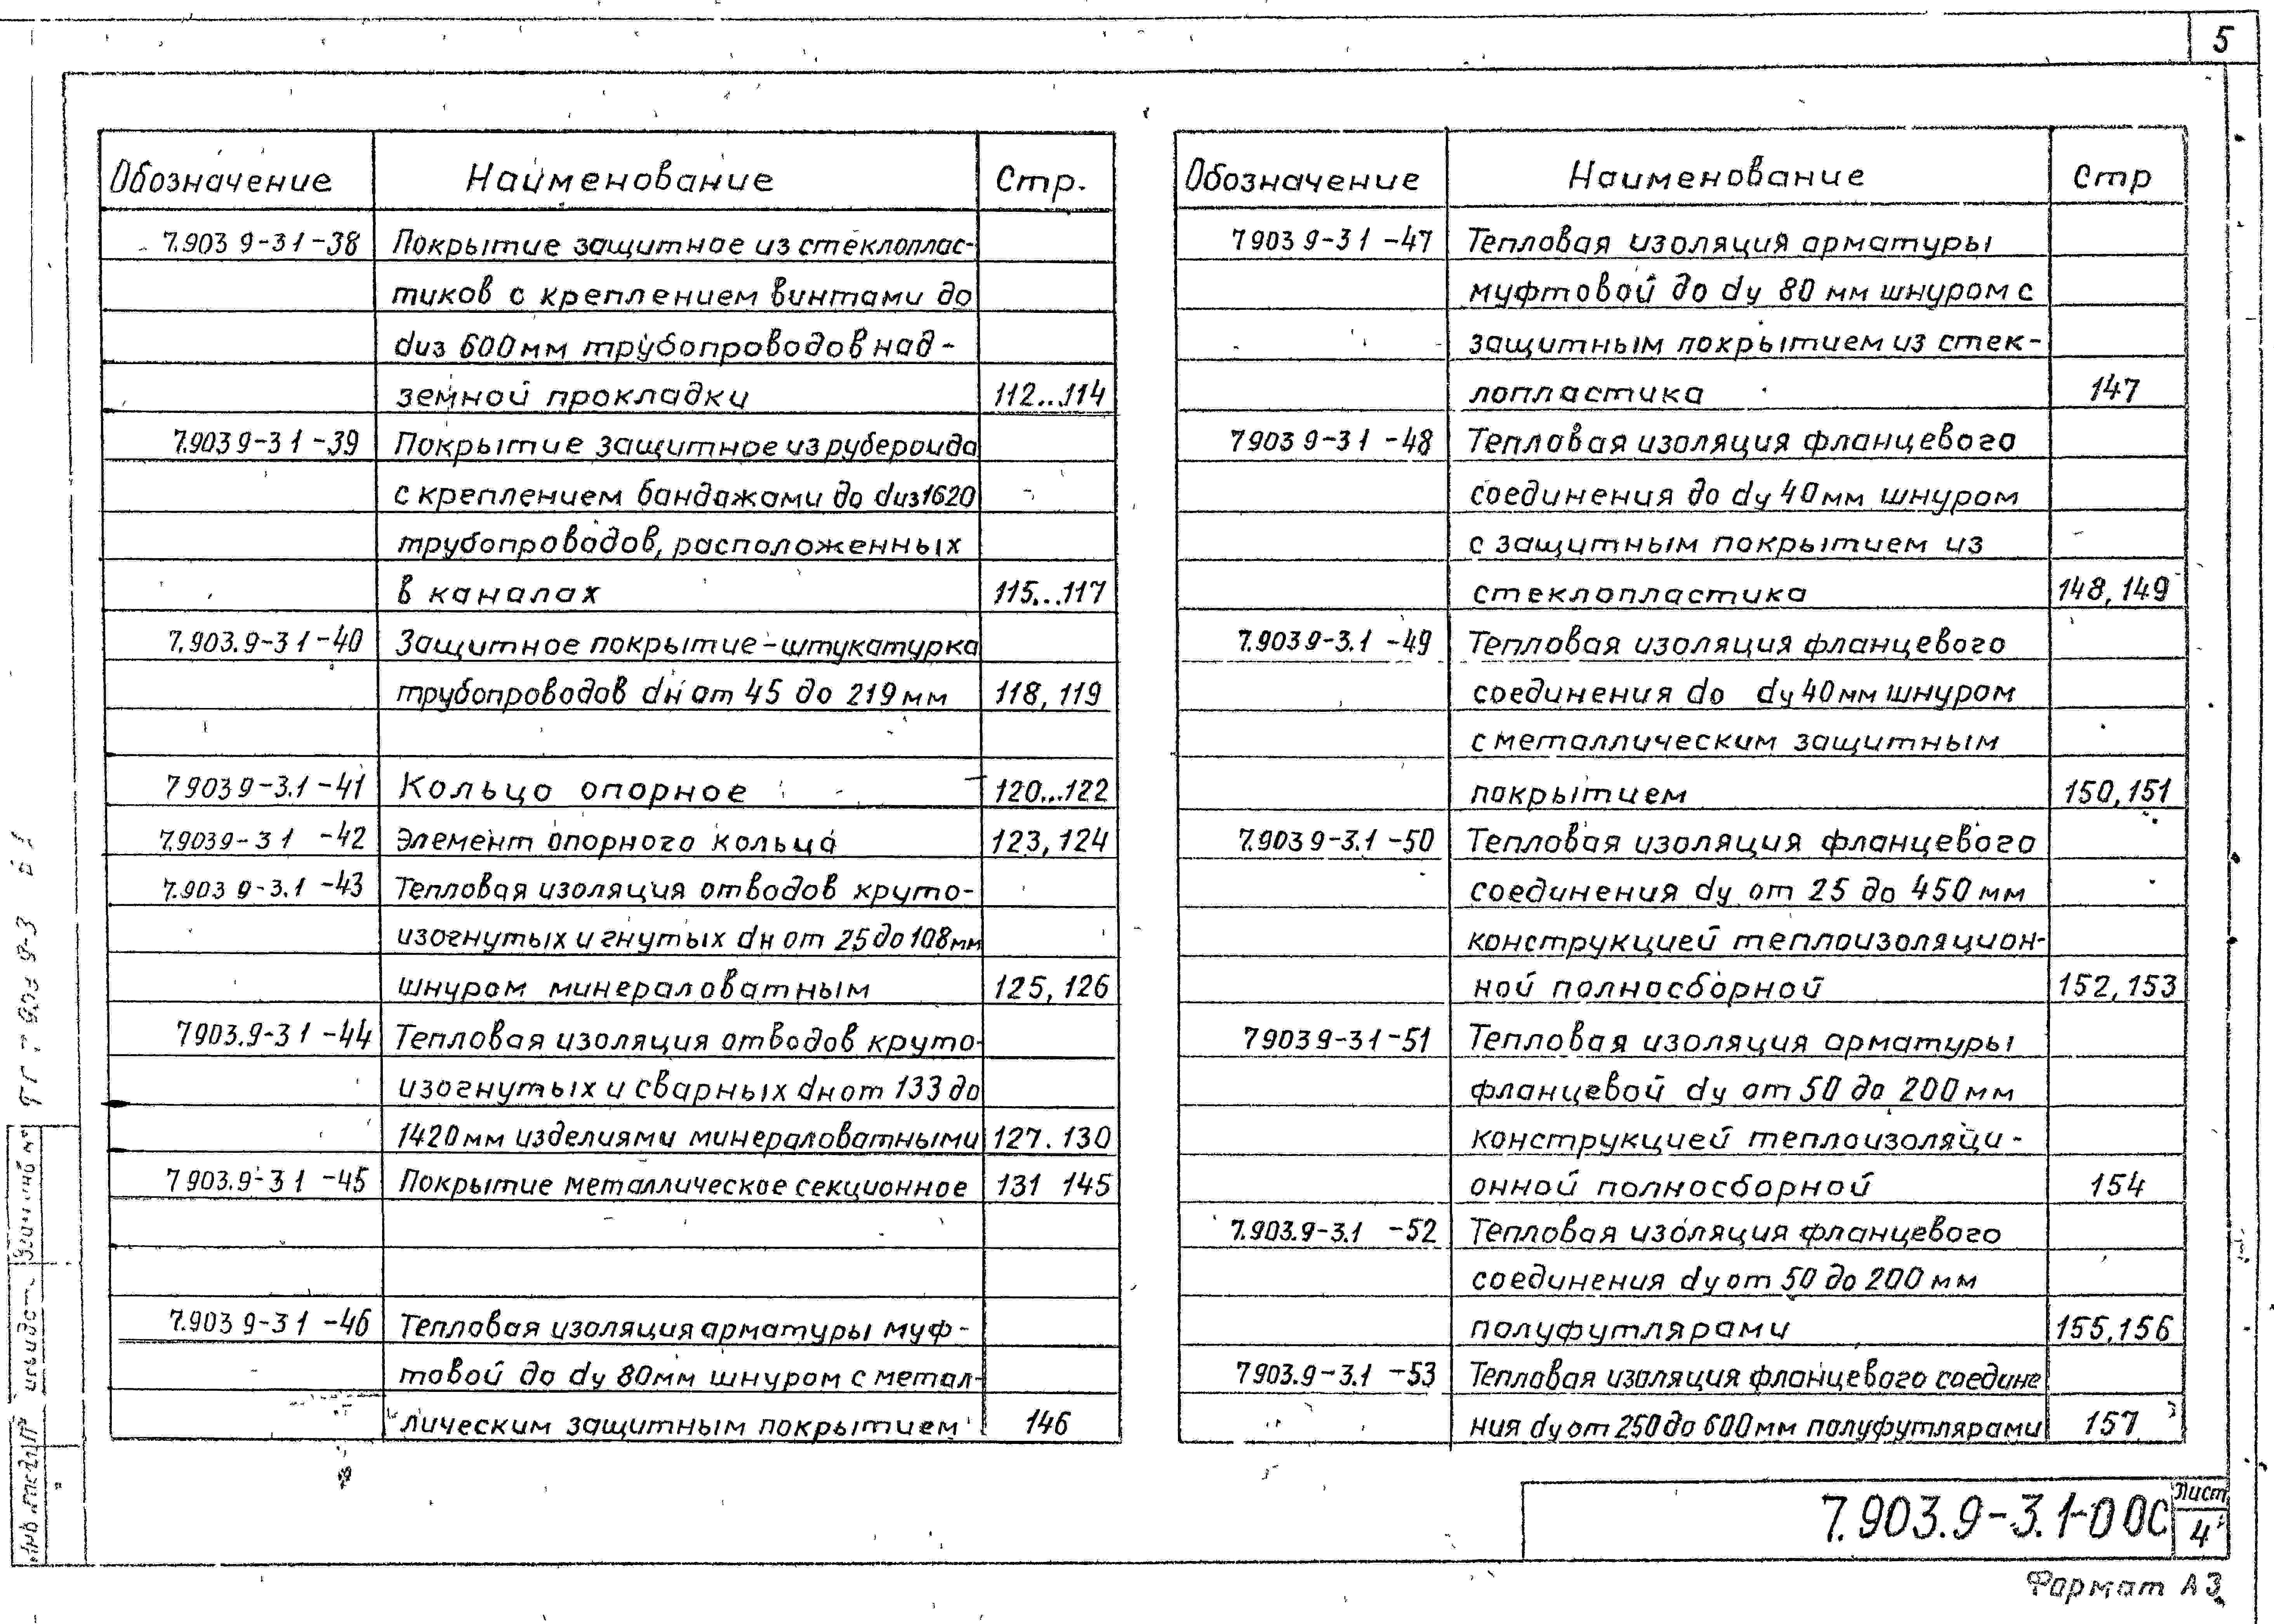 5
Обозначение Наименование Стр.
7.903 9-3 1 -38 Покрытие защитное из стеклоплас-
тиков с креплением винтами до
dиз 600мм трубопроводов над-
земной прокладки 112...114
7.903 9-3 1 -39 Покрытие защитное из рубероида
с креплением бандажами до dиз1620
трубопроводов, расположенных
в каналах 115...117
7.903.9-3 1 -40 Защитное покрытие-штукатурка
трубопроводов dн от 45 до 219мм 118, 119
7 903 9-3.1 -41 Кольцо опорное 120...122
7.903 9-3 1 -42 Элемент опорного кольца 123, 124
7.903 9-3.1 -43 Тепловая изоляция отводов круто-
изогнутых и гнутых dн от 25 до 108мм
шнуром минераловатным 125, 126
7 903.9-3 1 -44 Тепловая изоляция отводов круто-
изогнутых и сварных dн от 133 до
1420мм изделиями минераловатными 127. 130
7 903.9-3 1 -45 Покрытие металлическое секционное 131 145
7.903 9-3 1 -46 Тепловая изоляция арматуры муф-
товой до dу 80мм шнуром с метал-
лическим защитным покрытием 146
Обозначение Наименование Стр
7 903 9-3 1 -47 Тепловая изоляция арматуры
муфтовой до dу 80 мм шнуром с
защитным покрытием из стек-
лопластика 147
7 903 9-3 1 -48 Тепловая изоляция фланцевого
соединения до dу 40мм шнуром
с защитным покрытием из
стеклопластика 148, 149
7.903 9-3.1 -49 Тепловая изоляция фланцевого
соединения до dу 40мм шнуром
с металлическим защитным
покрытием 150, 151
7.903 9-3.1 -50 Тепловая изоляция фланцевого
соединения dу от 25 до 450 мм
конструкцией теплоизоляцион-
ной полносборной 152, 153
7 903 9-3 1 -51 Тепловая изоляция арматуры
фланцевой dу от 50 до 200 мм
конструкцией теплоизоляци-
онной полносборной 154
7.903.9-3.1 -52 Тепловая изоляция фланцевого
соединения dу от 50 до 200 мм
полуфутлярами 155, 156
7 903.9-3.1 -53 Тепловая изоляция фланцевого соедине
ния dу от 250 до 600мм полуфутлярами 157
7.903.9-3.1-0 0С
Лист
4
Формат А3